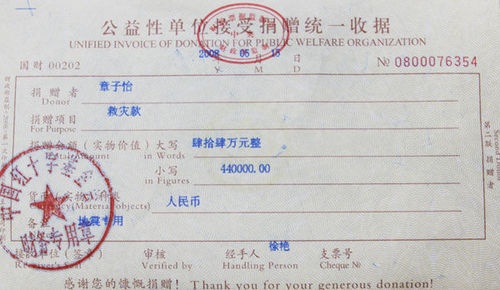 公益性单位接受捐赠统一收据
UNIFIED INVOICE OF DONATION FOR PUBLIC WELFARE ORGANIZATION
国财 00202 2008 05 15 № 0800076354
Y M D
捐赠者 章子怡
Donor
捐赠项目 救灾款
For Purpose
捐赠金额(实物价值) 大写 肆拾肆万元整
Total Amount in Words
小写 440000.00
in Figures
货币(实物)种类 人民币
(Material objects)
备注 地震专用
中国红十字基金会
财务专用章
审核 经手人 徐艳 支票号
Receiver's Seal Verified by Handling Person Cheque №
感谢您的慷慨捐赠! Thank you for your generous donation!